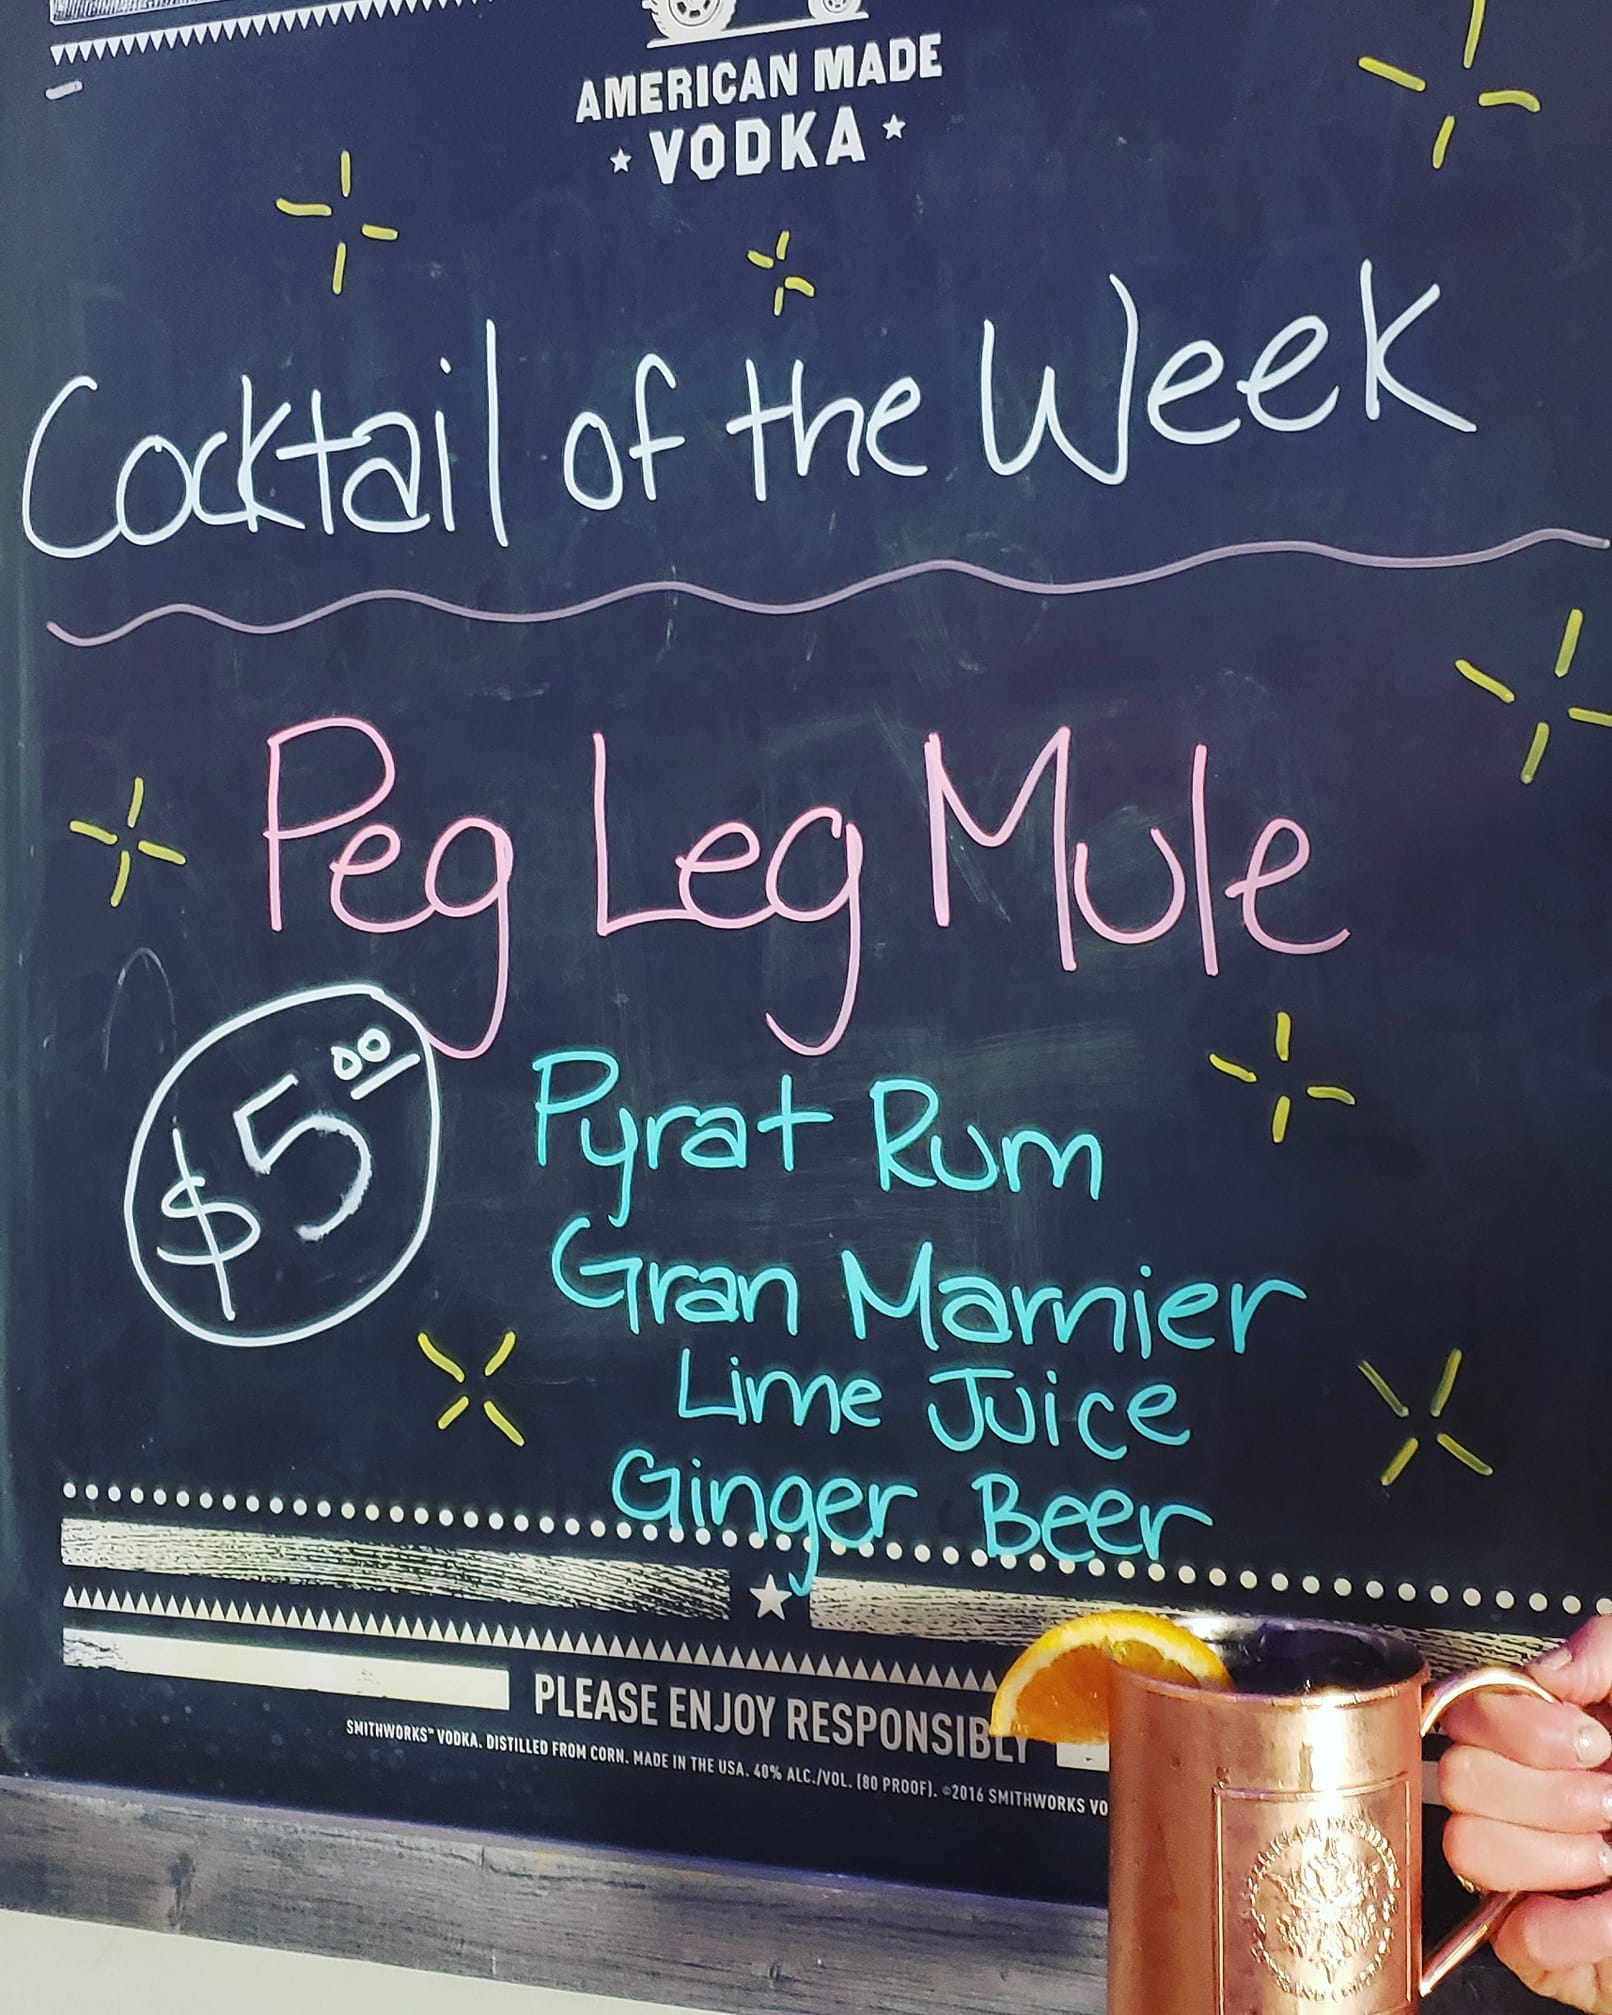 AMERICAN MADE
VODKA
Cocktail of the Week
Peg Leg Mule
$5.00
Pyrat Rum
Gran Marnier
Lime Juice
Ginger Beer
PLEASE ENJOY RESPONSIBLY
SMITHWORKS™ VODKA. DISTILLED FROM CORN. MADE IN THE USA. 40% ALC./VOL. (80 PROOF). ©2016 SMITHWORKS VO